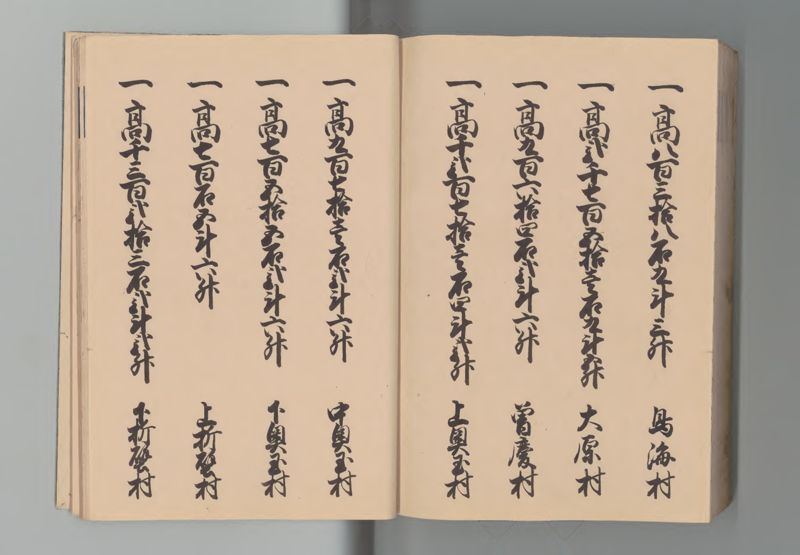 一高八百三拾八石九斗三升 鳥海村
一高弐千七百五拾壱石九斗五升 大原村
一高九百六拾四石弐斗六升 曽慶村
一高千弐百七拾壱石四斗弐升 上奥玉村
一高九百七拾壱石弐斗六升 中奥玉村
一高七百五拾五石弐斗六升 下奥玉村
一高七百石五斗六升 上折壁村
一高千三百弐拾三石弐斗弐升 下折壁村